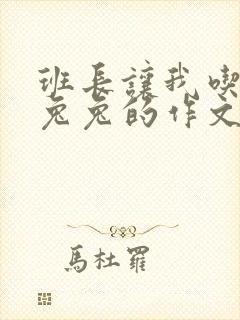 班长讓我喫
兔兔的作文
馬杜羅